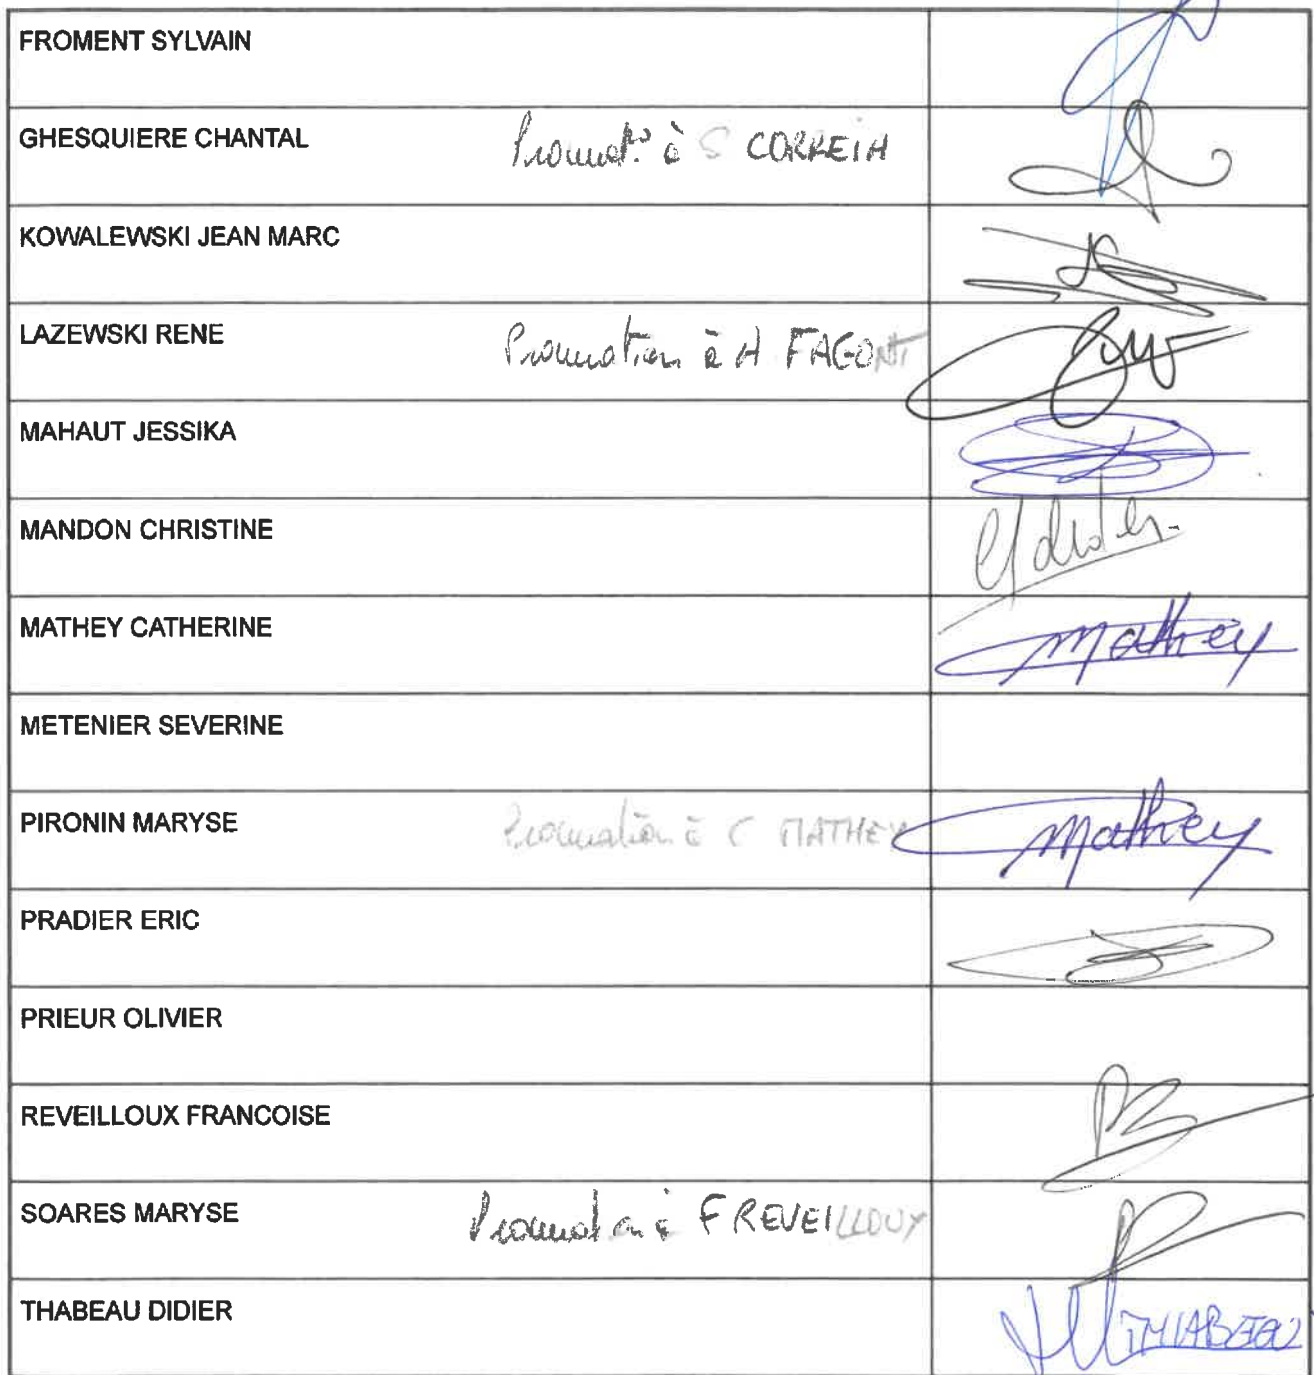 FROMENT SYLVAIN
GHESQUIERE CHANTAL Procurat° à S CORREIA
KOWALEWSKI JEAN MARC
LAZEWSKI RENE Procuration à H FAGONT
MAHAUT JESSIKA
MANDON CHRISTINE
MATHEY CATHERINE Mathey
METENIER SEVERINE
PIRONIN MARYSE Procuration à C MATHEY Mathey
PRADIER ERIC
PRIEUR OLIVIER
REVEILLOUX FRANCOISE
SOARES MARYSE Procuration à F REVEILLOUX
THABEAU DIDIER THABEAU